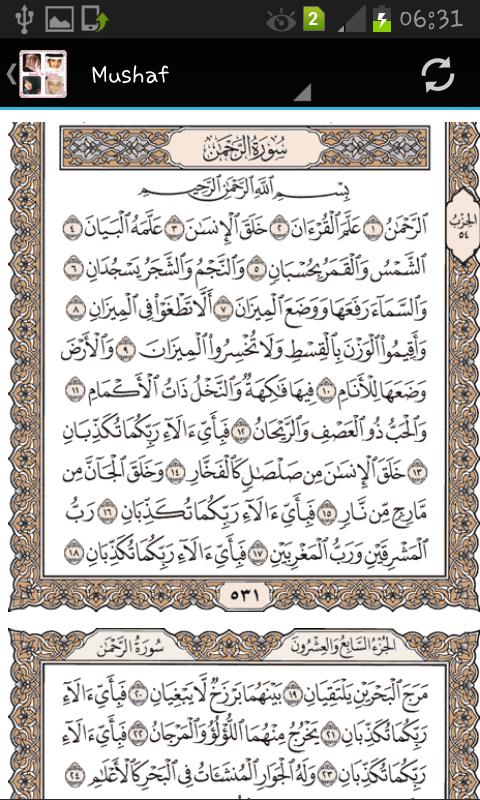 2
06:31
Mushaf
سُورَةُ الرَّحْمَٰن
بِسْمِ ٱللَّهِ ٱلرَّحْمَٰنِ ٱلرَّحِيمِ
ٱلرَّحْمَٰنُ ١ عَلَّمَ ٱلْقُرْءَانَ ٢ خَلَقَ ٱلْإِنسَٰنَ ٣ عَلَّمَهُ ٱلْبَيَانَ ٤
الحِزْب
٥٤
ٱلشَّمْسُ وَٱلْقَمَرُ بِحُسْبَانٍ ٥ وَٱلنَّجْمُ وَٱلشَّجَرُ يَسْجُدَانِ ٦
وَٱلسَّمَآءَ رَفَعَهَا وَوَضَعَ ٱلْمِيزَانَ ٧ أَلَّا تَطْغَوْا۟ فِى ٱلْمِيزَانِ ٨
وَأَقِيمُوا۟ ٱلْوَزْنَ بِٱلْقِسْطِ وَلَا تُخْسِرُوا۟ ٱلْمِيزَانَ ٩ وَٱلْأَرْضَ
وَضَعَهَا لِلْأَنَامِ ١٠ فِيهَا فَٰكِهَةٌ وَٱلنَّخْلُ ذَاتُ ٱلْأَكْمَامِ ١١
وَٱلْحَبُّ ذُو ٱلْعَصْفِ وَٱلرَّيْحَانُ ١٢ فَبِأَىِّ ءَالَآءِ رَبِّكُمَا تُكَذِّبَانِ
١٣ خَلَقَ ٱلْإِنسَٰنَ مِن صَلْصَٰلٍ كَٱلْفَخَّارِ ١٤ وَخَلَقَ ٱلْجَآنَّ مِن
مَّارِجٍ مِّن نَّارٍ ١٥ فَبِأَىِّ ءَالَآءِ رَبِّكُمَا تُكَذِّبَانِ ١٦ رَبُّ
ٱلْمَشْرِقَيْنِ وَرَبُّ ٱلْمَغْرِبَيْنِ ١٧ فَبِأَىِّ ءَالَآءِ رَبِّكُمَا تُكَذِّبَانِ ١٨
٥٣١
الجُزْءُ السَّابِعُ وَالعِشْرُونَ
سُورَةُ الرَّحْمَٰن
مَرَجَ ٱلْبَحْرَيْنِ يَلْتَقِيَانِ ١٩ بَيْنَهُمَا بَرْزَخٌ لَّا يَبْغِيَانِ ٢٠ فَبِأَىِّ ءَالَآءِ
رَبِّكُمَا تُكَذِّبَانِ ٢١ يَخْرُجُ مِنْهُمَا ٱللُّؤْلُؤُ وَٱلْمَرْجَانُ ٢٢ فَبِأَىِّ ءَالَآءِ
رَبِّكُمَا تُكَذِّبَانِ ٢٣ وَلَهُ ٱلْجَوَارِ ٱلْمُنشَـَٔاتُ فِى ٱلْبَحْرِ كَٱلْأَعْلَٰمِ ٢٤